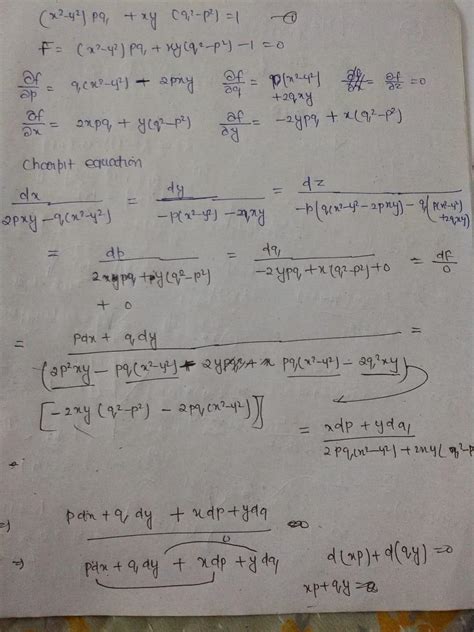 (x²-y²) pq + xy (q²-p²) = 1 — ①
F = (x²-y²) pq + xy (q²-p²) - 1 = 0
∂f/∂p = q(x²-y²) - 2pxy   ∂f/∂q = p(x²-y²) + 2qxy   ∂f/∂z = 0
∂f/∂x = 2xpq + y(q²-p²)   ∂f/∂y = -2ypq + x(q²-p²)
Charpit equation
dx/(2pxy - q(x²-y²)) = dy/(-p(x²-y²) - 2qxy) = dz/(-p(q(x²-y²-2pxy) - q(p(x²-y²) + 2qxy))
= dp/(2xpq + y(q²-p²) + 0) = dq/(-2ypq + x(q²-p²) + 0) = df/0
= pdx + qdy =
(2p²xy - pq(x²-y²) - pq(x²-y²) - 2q²xy)
[-2xy (q²-p²) - 2pq(x²-y²)]
= xdp + ydq/(2pq(x²-y²) + 2xy(q²-p
⇒ pdx + qdy + xdp + ydq
0
⇒ pdx + qdy + xdp + ydq
d(xp) + d(qy) = 0
xp + qy = a